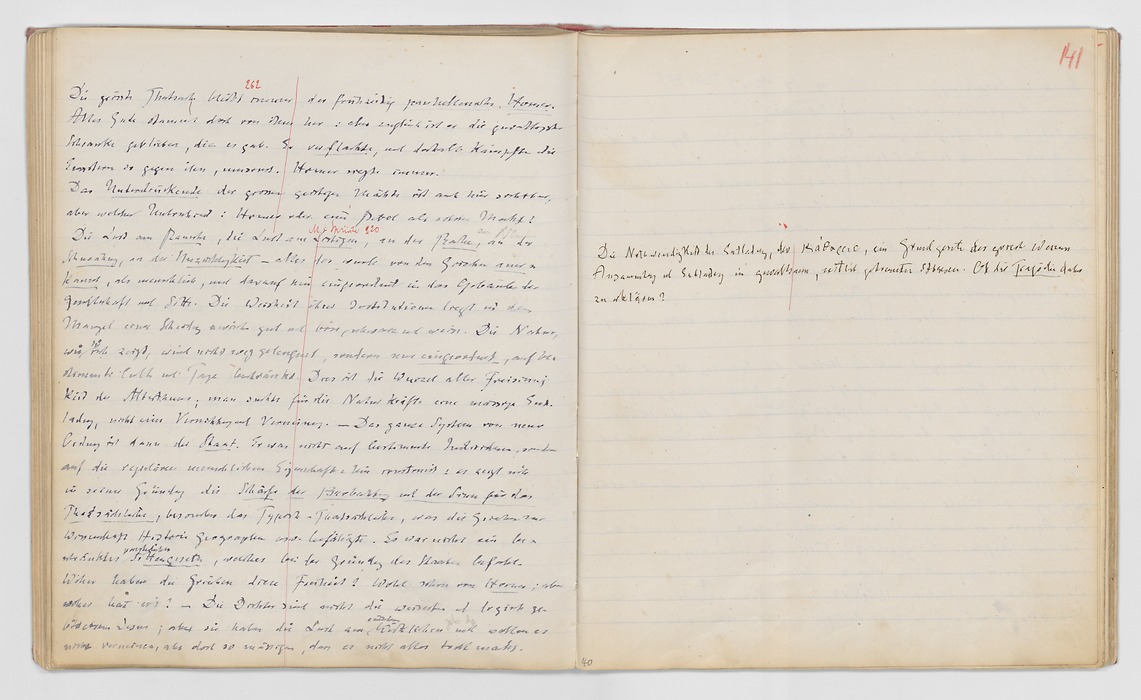 262
Die grösste Thatsache bleibt immer der frühzeitig panhellenische Homer.
Alles Gute stammt doch von ihm her: aber zugleich ist er die gewaltigste
Schranke geblieben, die es gab. Er verflachte, und deshalb kämpften die
Ernstern so gegen ihn, umsonst. Homer siegte immer.
Das Unterdrückende der grossen geistigen Mächte ist auch hier sichtbar,
aber welcher Unterschied: Homer oder eine Bibel als solche Macht!
M. Sprüche 220
Die Lust am Rausche, die Lust am Listigen, an der Rache, an der
Schmähung, an der Unzüchtigkeit — alles das wurde von den Griechen
anerkannt, als menschlich, und darauf hin eingeordnet in das Gebäude der
Gesellschaft und Sitte. Die Weisheit ihrer Institutionen liegt in dem
Mangel einer Scheidung zwischen gut und böse, schwarz und weiss. Die Natur,
wie sie sich zeigt, wird nicht weggeleugnet, sondern nur eingeordnet, auf be-
stimmte Culte und Tage beschränkt. Dies ist die Wurzel aller Freisinnig-
keit des Alterthums; man suchte für die Naturkräfte eine mässige Ent-
ladung, nicht eine Vernichtung und Verneinung. — Das ganze System von neuer
Ordnung ist dann der Staat. Er war nicht auf bestimmte Individuen, sondern
auf die regulären menschlichen Eigenschaften hin construirt: es zeigt sich
in seiner Gründung die Schärfe der Beobachtung und der Sinn für das
Thatsächliche, besonders das Typisch-Thatsächliche, was die Griechen zur
Wissenschaft Historie Geographie usw. befähigte. Es war nicht ein be-
schränktes priesterliches Sittengesetz, welches bei der Gründung des Staates befahl.
Woher haben die Griechen diese Freiheit? Wohl schon von Homer; aber
woher hat er's? — Die Dichter sind nicht die weisesten und logisch ge-
bildetsten Wesen; aber sie haben die Lust am einzelnen Wirklichen und wollen es
nicht verneinen, aber doch so mässigen, dass es nicht alles todt macht.
40
141
Die Nothwendigkeit der Entladung, der κάθαρσις, ein Grundgesetz des griech. Wesens
Ansammlung und Entladung in gewaltsamen, zeitlich getrennten Stössen. Ob die Tragödie daher
zu erklären?